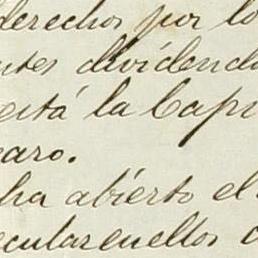 derechos por lo
ntes dividend
está la Capi
caro.
ha abierto el
ecular en ellos